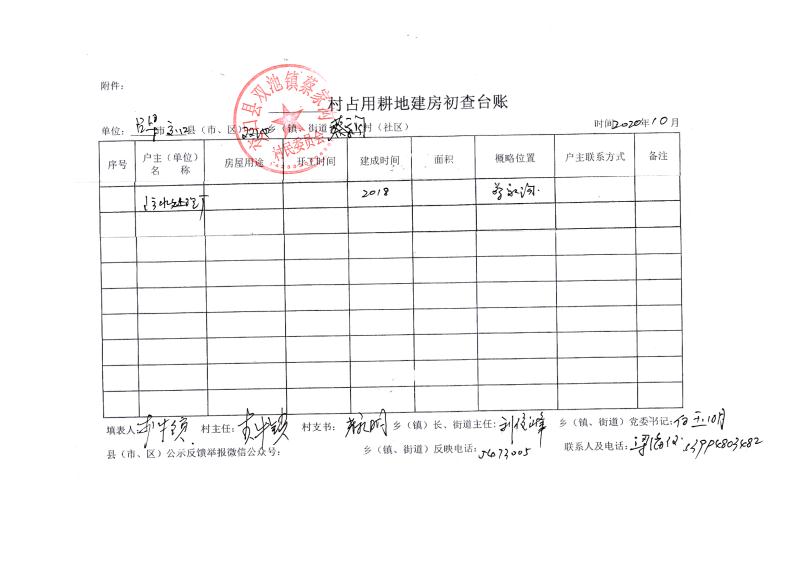 附件：
村占用耕地建房初查台账
单位： 吕梁市交口县（市、区）双池乡（镇、街道）蔡家沟村（社区） 时间2020年10月
交口县双池镇蔡家沟
村民委员会
序号 户主（单位）名 称 房屋用途 开工时间 建成时间 面积 概略位置 户主联系方式 备注
污水处理厂 2018 蔡家沟
填表人： 村主任： 村支书： 乡（镇）长、街道主任：刘俊峰 乡（镇、街道）党委书记：
县（市、区）公示反馈举报微信公众号： 乡（镇、街道）反映电话：5473005 联系人及电话： 13994803482